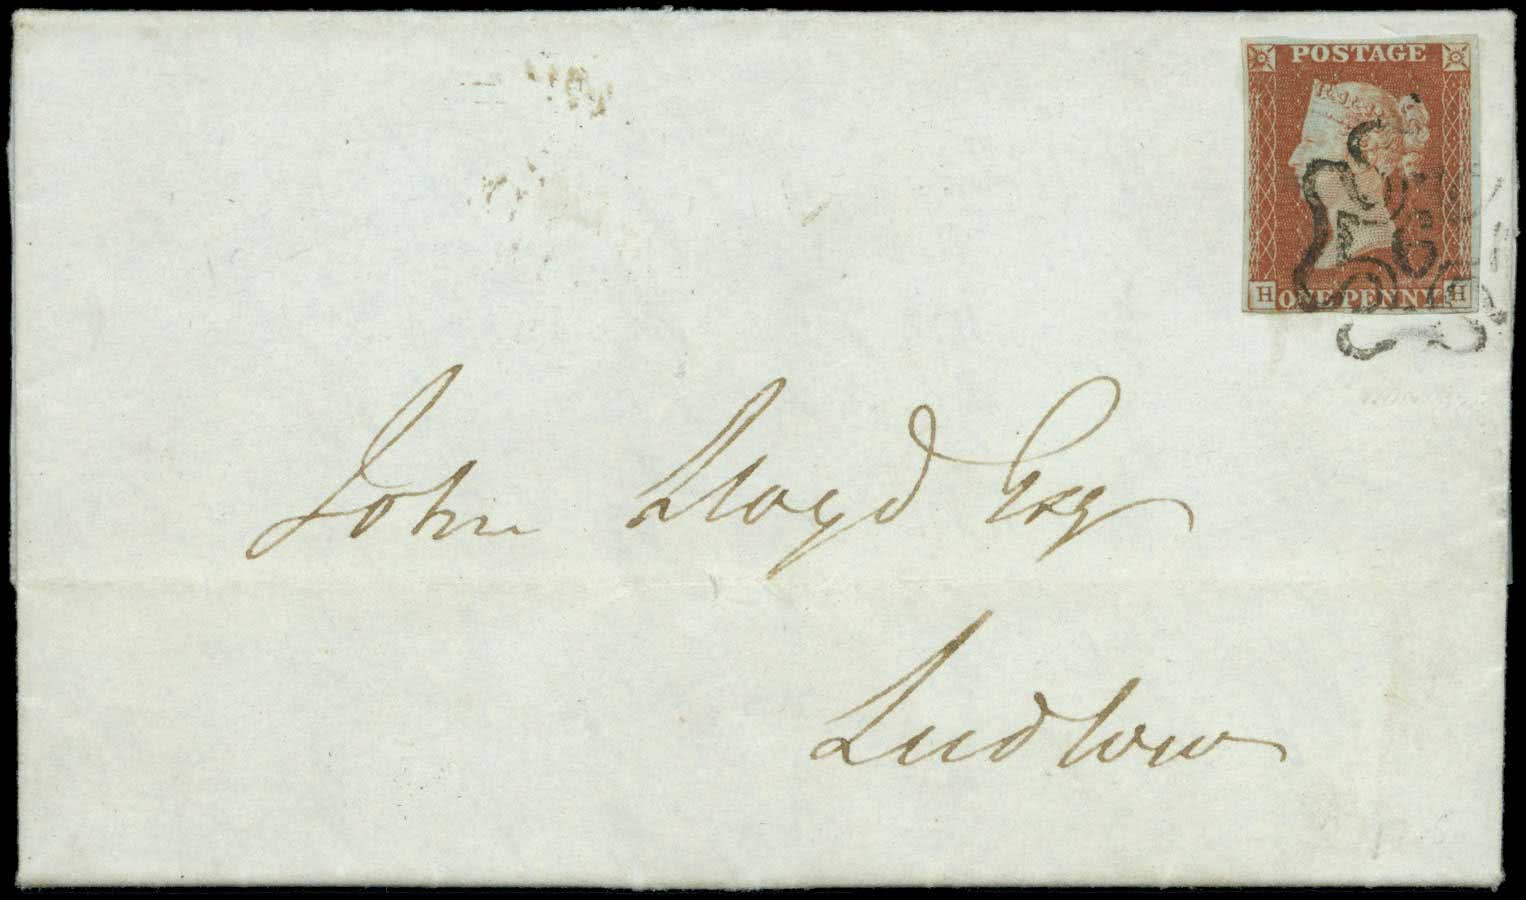 POSTAGE
H ONE PENNY H
John Lloyd Esq
Ludlow